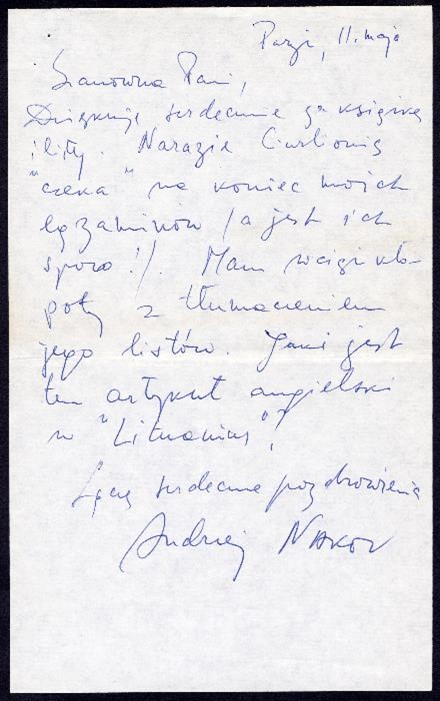 Paryż, 11. maja
Szanowna Pani,
Dziękuję serdecznie za książkę
i listy. Narazie Ciurlionis
"czeka" na koniec moich
egzaminów /a jest ich
sporo!/. Mam wciąż kło-
poty z tłumaczeniem
jego listów. Jaki jest
ten artykuł angielski
w "Lituanus"?
Łączę serdeczne pozdrowienia
Andrzej NAKOV